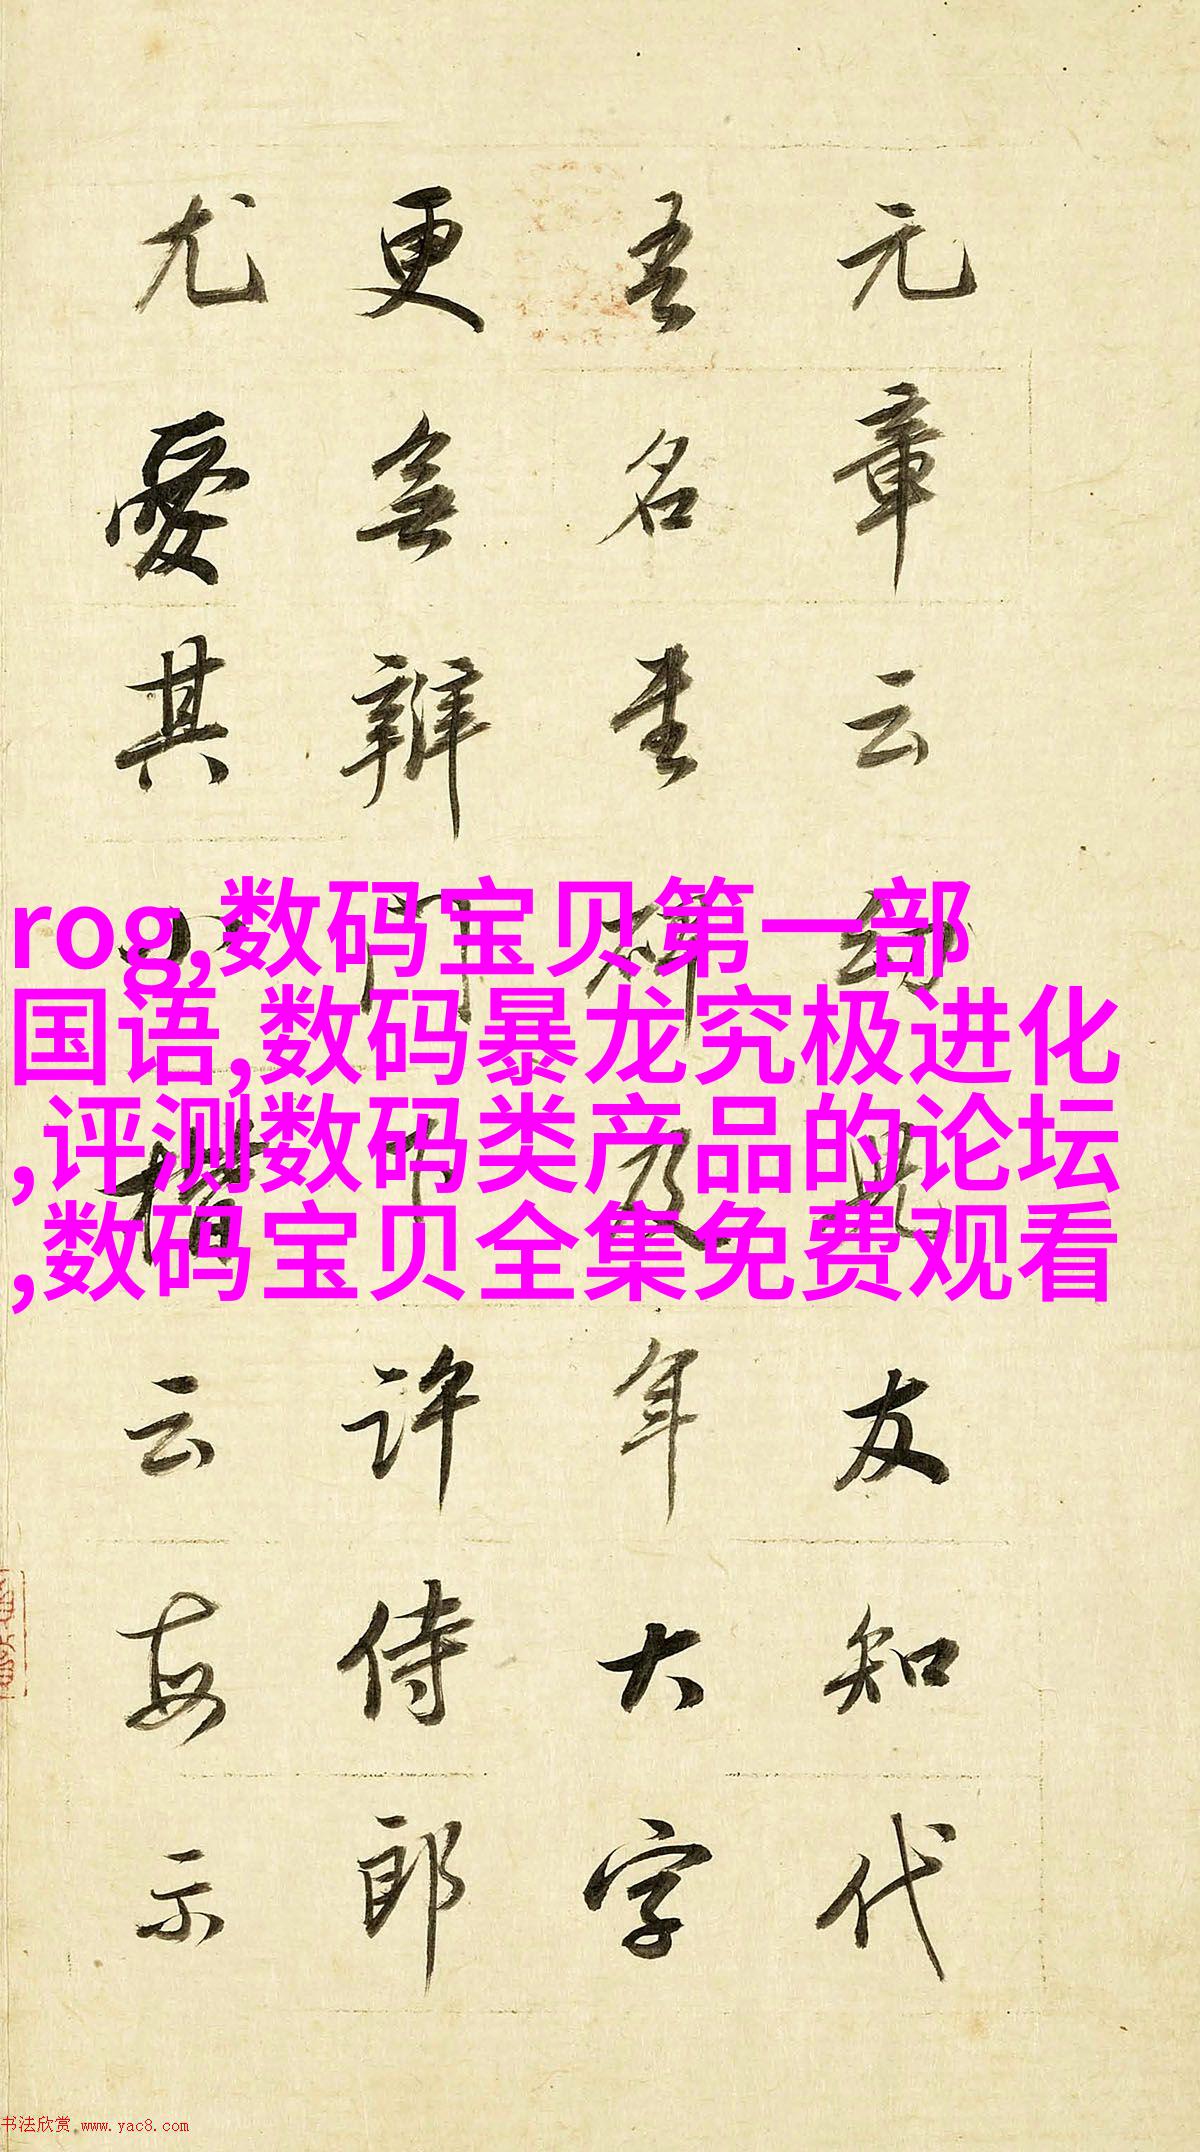 元章云幼兒友知代
吾名書碑及年大字
更無辨門下許侍郎
尤愛其小楷云每示
rog,数码宝贝第一部
国语,数码暴龙究极进化
,评测数码类产品的论坛
,数码宝贝全集免费观看
书法欣赏.www.yac8.com